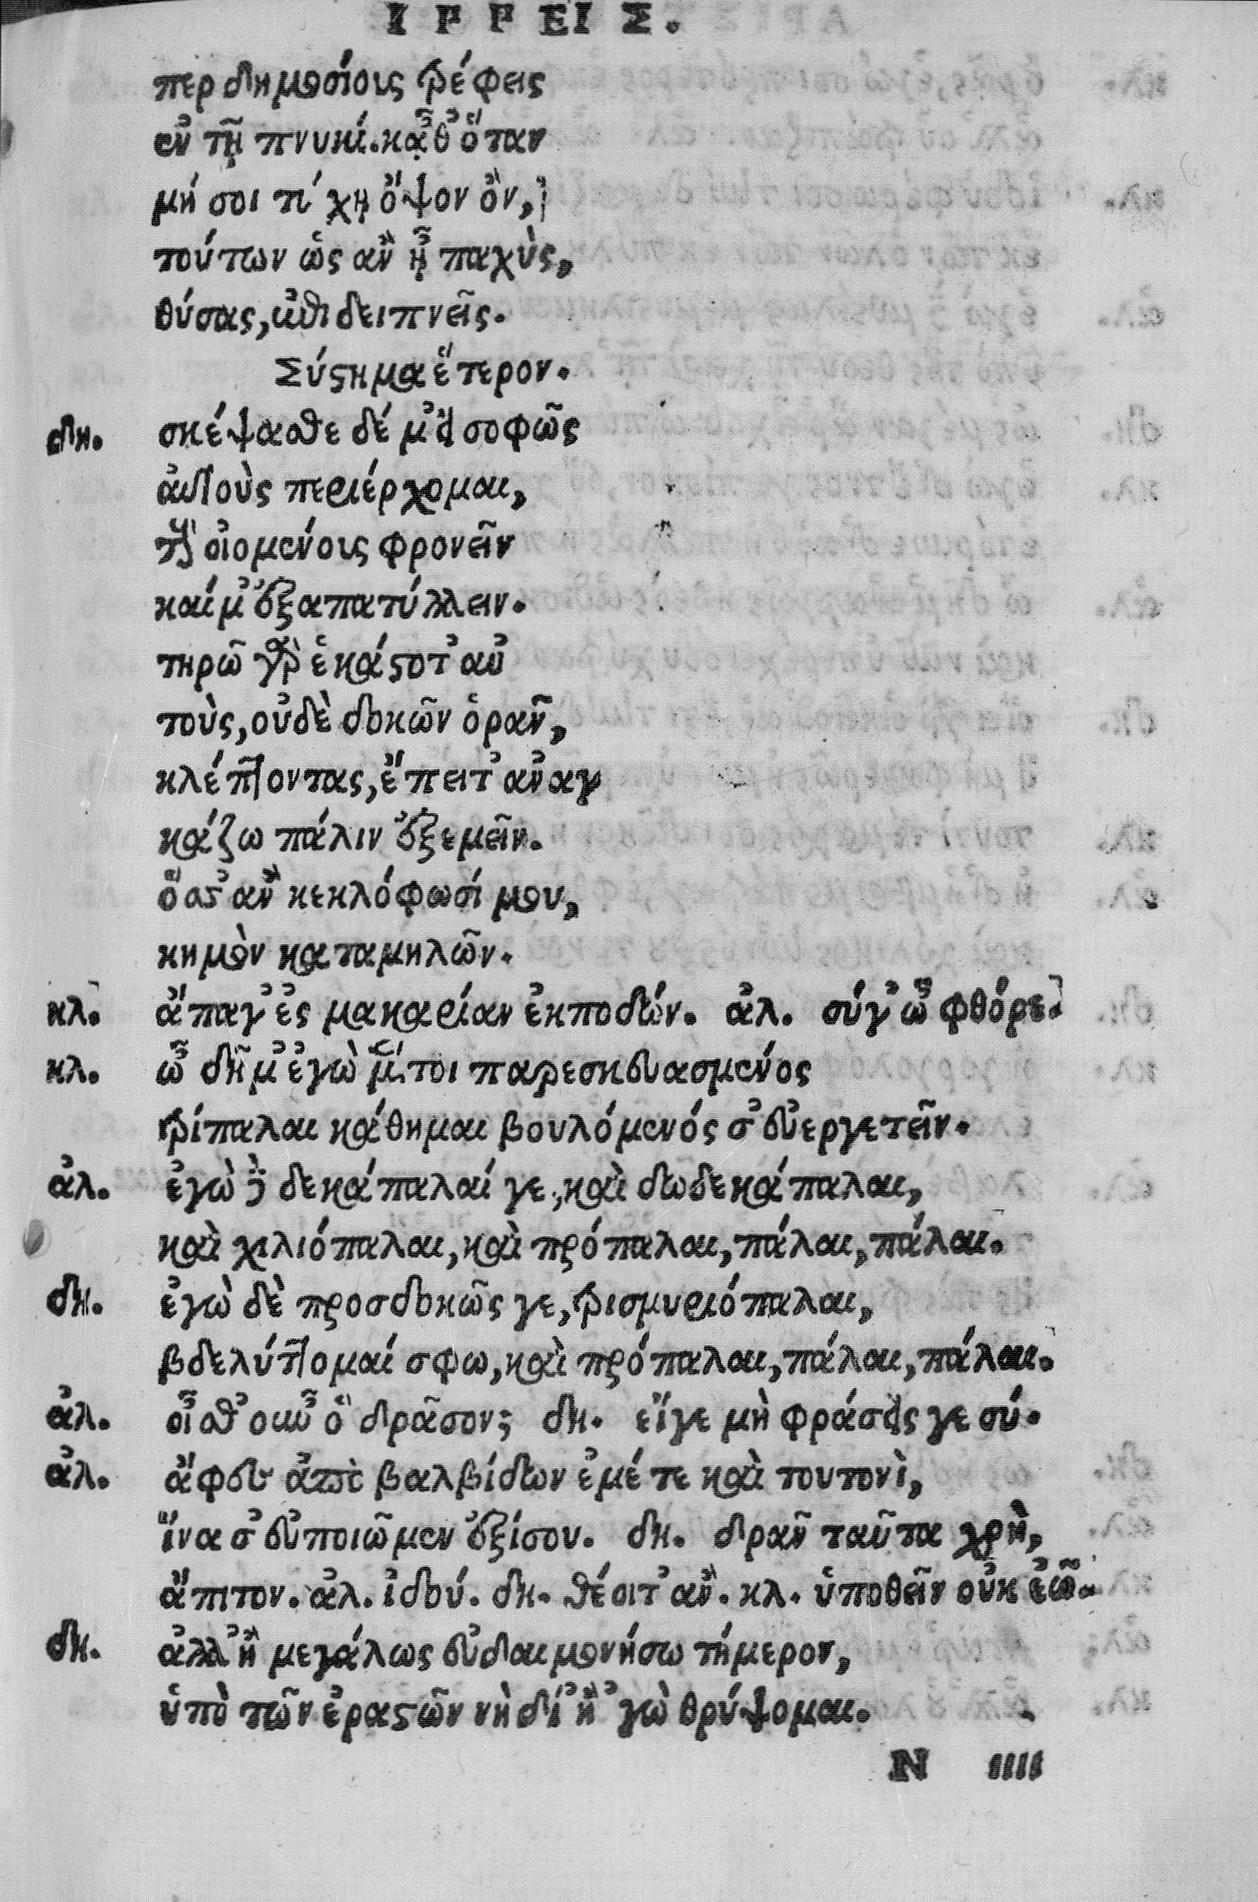 ΙΡΡΕΙΣ.
περ δημοσίους τρέφεις
ἐν τῇ πνυκί. κᾆθ᾽ ὅταν
μή σοι τύχῃ ὄψον ὂν,
τούτων ὡς ἂν ᾖ παχὺς,
θύσας, ἐπιδειπνεῖς.
Σύστημα ἕτερον.
δη. σκέψασθε δέ μ᾽ εἰ σοφῶς
αὐτοὺς περιέρχομαι,
τοὺς οἰομένους φρονεῖν
καί μ᾽ ἐξαπατύλλειν.
τηρῶ γὰρ ἑκάστοτ᾽ αὐ
τοὺς, οὐδὲ δοκῶν ὁρᾶν,
κλέπτοντας, ἔπειτ᾽ ἀναγ
κάζω πάλιν ἐξεμεῖν.
ὅσστ᾽ ἂν κεκλόφωσί μου,
κημὸν καταμηλῶν.
κλ. ἄπαγ᾽ ἐς μακαρίαν ἐκποδών. ἀλ. σύγ᾽ ὦ φθόρε.
κλ. ὦ δῆμ᾽ ἐγὼ μέντοι παρεσκευασμένος
τρίπαλαι κάθημαι βουλόμενός σ᾽ εὐεργετεῖν.
ἀλ. ἐγὼ δὲ δεκάπαλαί γε, καὶ δωδεκάπαλαι,
καὶ χιλιόπαλαι, καὶ πρόπαλαι, πάλαι, πάλαι.
δη. ἐγὼ δὲ προσδοκῶς γε, τρισμυριόπαλαι,
βδελύττομαί σφω, καὶ πρόπαλαι, πάλαι, πάλαι.
ἀλ. οἶσθ᾽ οὖν ὃ δρᾶσον; δη. εἴγε μὴ φράσεις γε σύ.
ἀλ. ἄφευ ἀπὸ βαλβίδων ἐμέ τε καὶ τουτονὶ,
ἵνα σ᾽ εὐποιῶμεν ἐξίσου. δη. δρᾶν ταῦτα χρὴ,
ἄπιτον. ἀλ. ἰδού. δη. θέοιτ᾽ ἄν. κλ. ὑποθεῖν οὐκ ἐῶ.
δη. ἀλλ᾽ ἢ μεγάλως εὐδαιμονήσω τήμερον,
ὑπὸ τῶν ἐραστῶν νὴ δί᾽ ἢ ᾽γὼ θρύψομαι.
N iiii